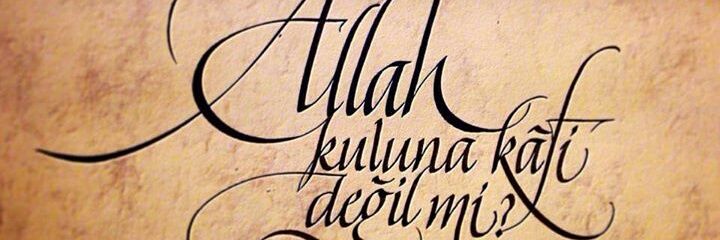 Allah
kuluna kâfi
değil mi?